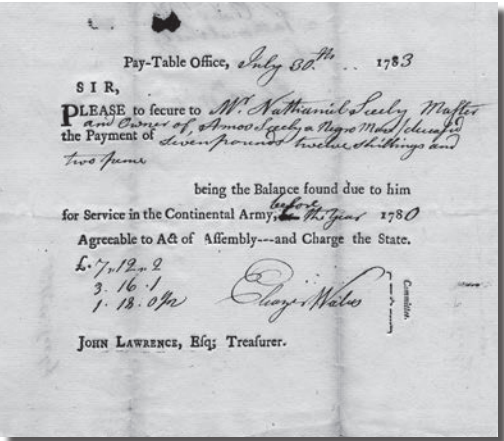 Pay-Table Office, July 30th .. 1783
SIR,
PLEASE to secure to Mr Nathaniel Seely Master
and Owner of, Amos Seely a Negro Man / deceas'd
the Payment of Seven pounds twelve shillings and
two pence
being the Balance found due to him
before
for Service in the Continental Army, the Year 1780
Agreeable to Act of Assembly---and Charge the State.
£. 7,,12,,2
3. 16. 1
1. 18. 0½
Eleazer Wales
Committee.
JOHN LAWRENCE, Esq; Treasurer.